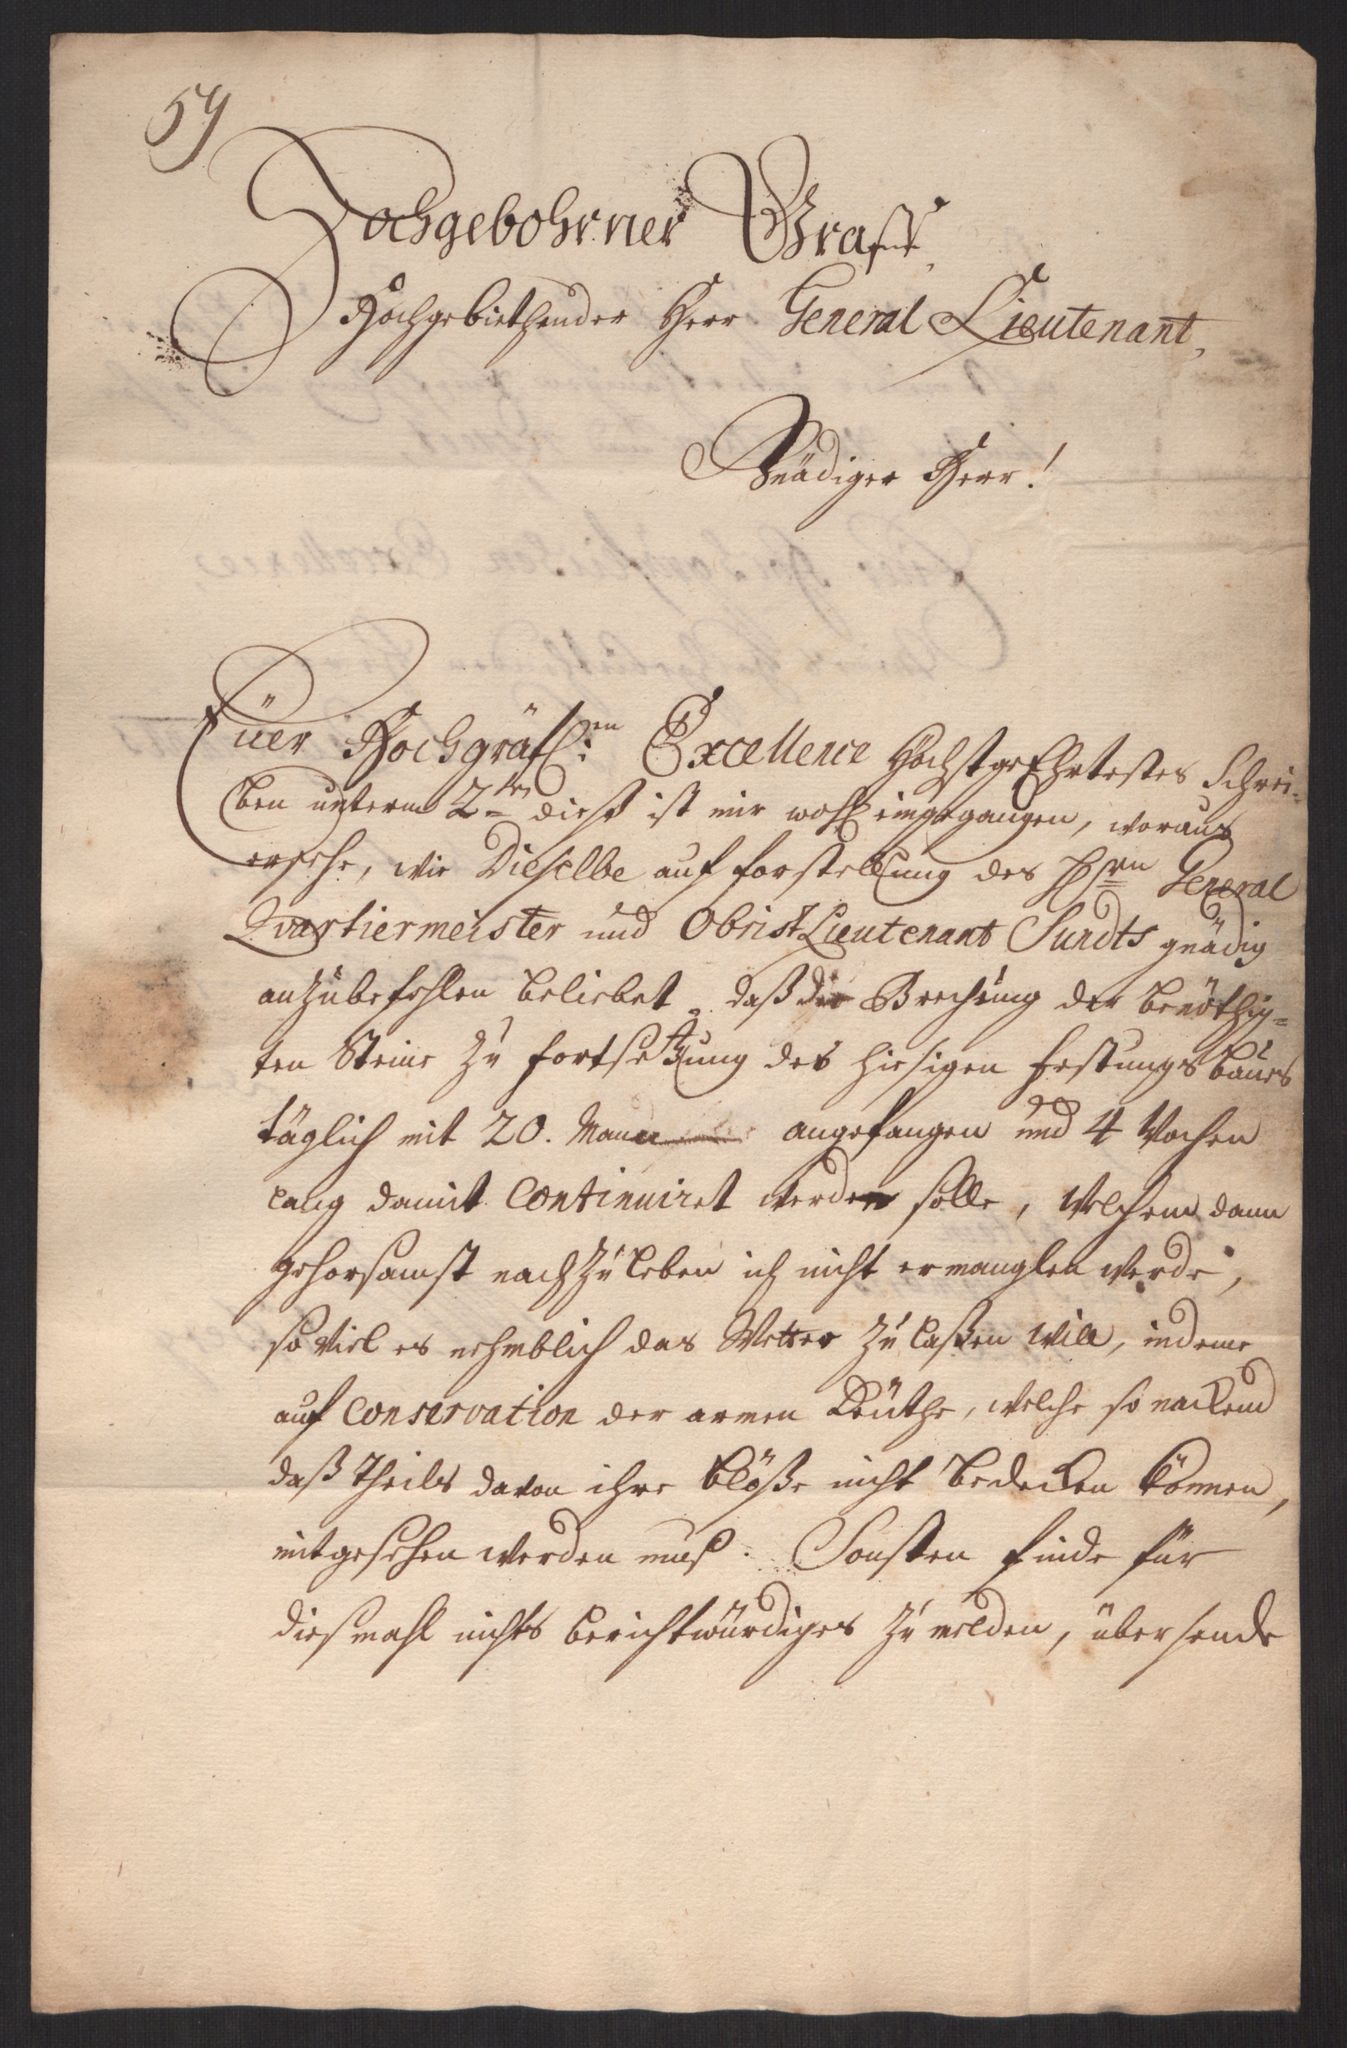 59
Hochgebohrner Graff,
Hochgebiethender Herr General Lieutenant,
Gnädiger Herr!
Eüer Hochgräfl:en Excellence Höchstgeehrtestes Schrei-
ben unterm 2ten dieß ist mir wohl eingegangen, woraus
ersehe, wie Dieselbe auf forstellung des Hrn General
Qvartiermeister und Obrist Lieutenant Sundts gnädig
anzübefehlen beliebet, daß die Brechüng der benöthig-
ten Steine zü fortsetzung des hiesigen Festungs baües
täglich mit 20. Mann angefangen und 4 Wochen
lang damit continuiret werden solle, welchem dann
gehorsamst nachzüleben ich nicht ermanglen werde,
so viel es nehmblich das Wetter zü laßen will, indeme
auf conservation der armen Leüthe, welche so nackend
daß theils davon ihre blöße nicht bedecken können,
mit gesehen werden muß. Sonsten finde für
diesmahl nichts berichtwürdiges zü melden, übersende